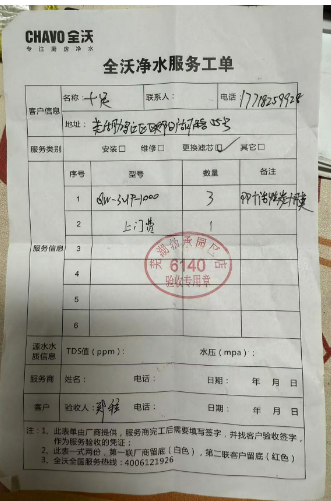 CHAVO 全沃
专注厨房净水
全沃净水服务工单
客户信息 名称： 联系人： 电话
地址：
服务类别 安装□ 维修□ 更换滤芯☑ 其它□
服务信息 序号 型号 数量 备注
1 3
2 上门费 1
3
4
5
6
6140
验收专用章
源水水质信息 TDS值（ppm）： 水压（mpa）：
服务商 姓名： 电话： 日期： 年 月 日
客户 验收人： 电话： 日期： 年 月 日
注：1、此表单由厂商提供，服务商完工后需要填写签字，并找客户验收签字，
作为服务验收的凭证；
2、此表一式两份，第一联厂商留底（白色），第二联客户留底（红色）
3、全沃全国服务热线：4006121926